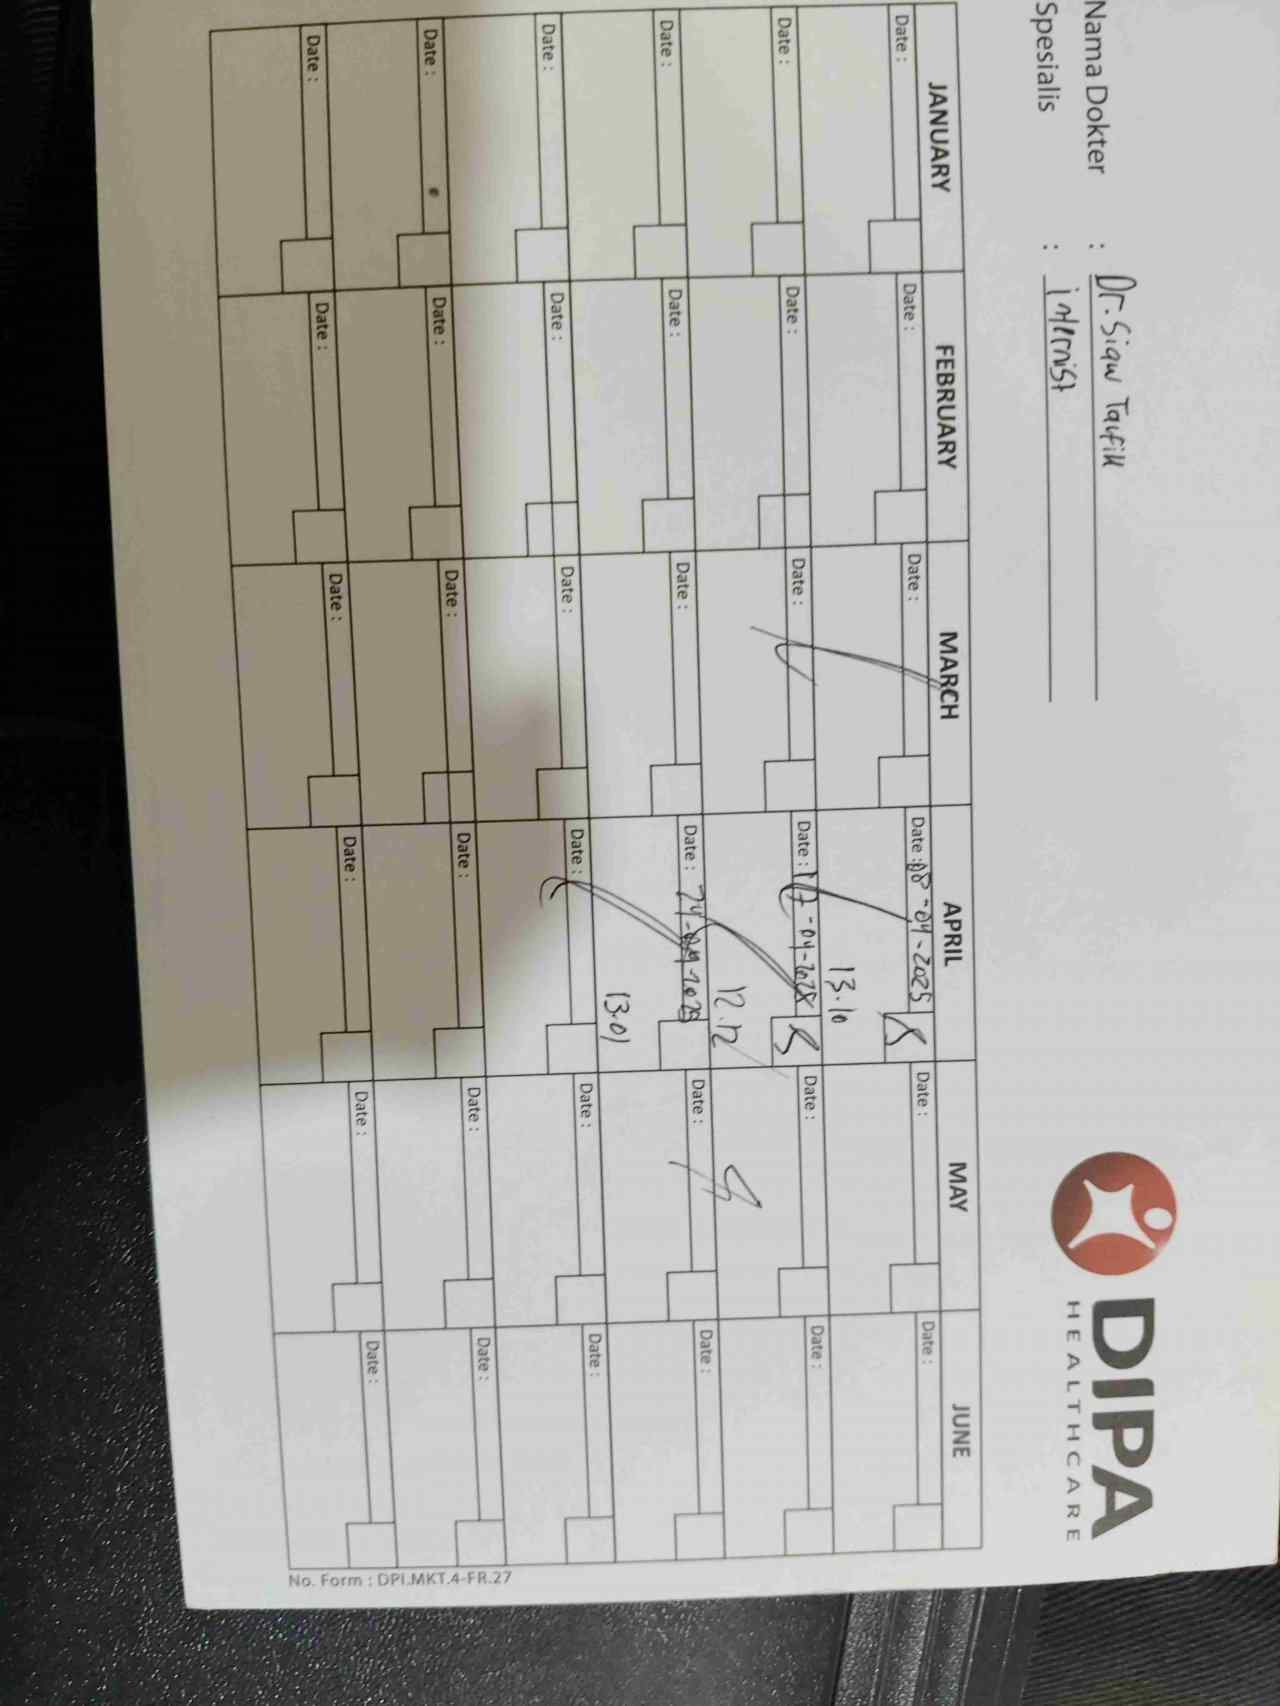 Nama Dokter : Dr. Siaw Taufik
Spesialis : internist
DIPA
HEALTHCARE
JANUARY FEBRUARY MARCH APRIL MAY JUNE
Date : Date : Date : Date : 08-04-2025 Date : Date :
13.10
Date : Date : Date : Date : 17-04-2025 Date : Date :
12.12
Date : Date : Date : Date : 24-04-2025 Date : Date :
13.01
Date : Date : Date : Date : Date : Date :
Date : Date : Date : Date : Date : Date :
Date : Date : Date : Date : Date : Date :
No. Form : DPI.MKT.4-FR.27